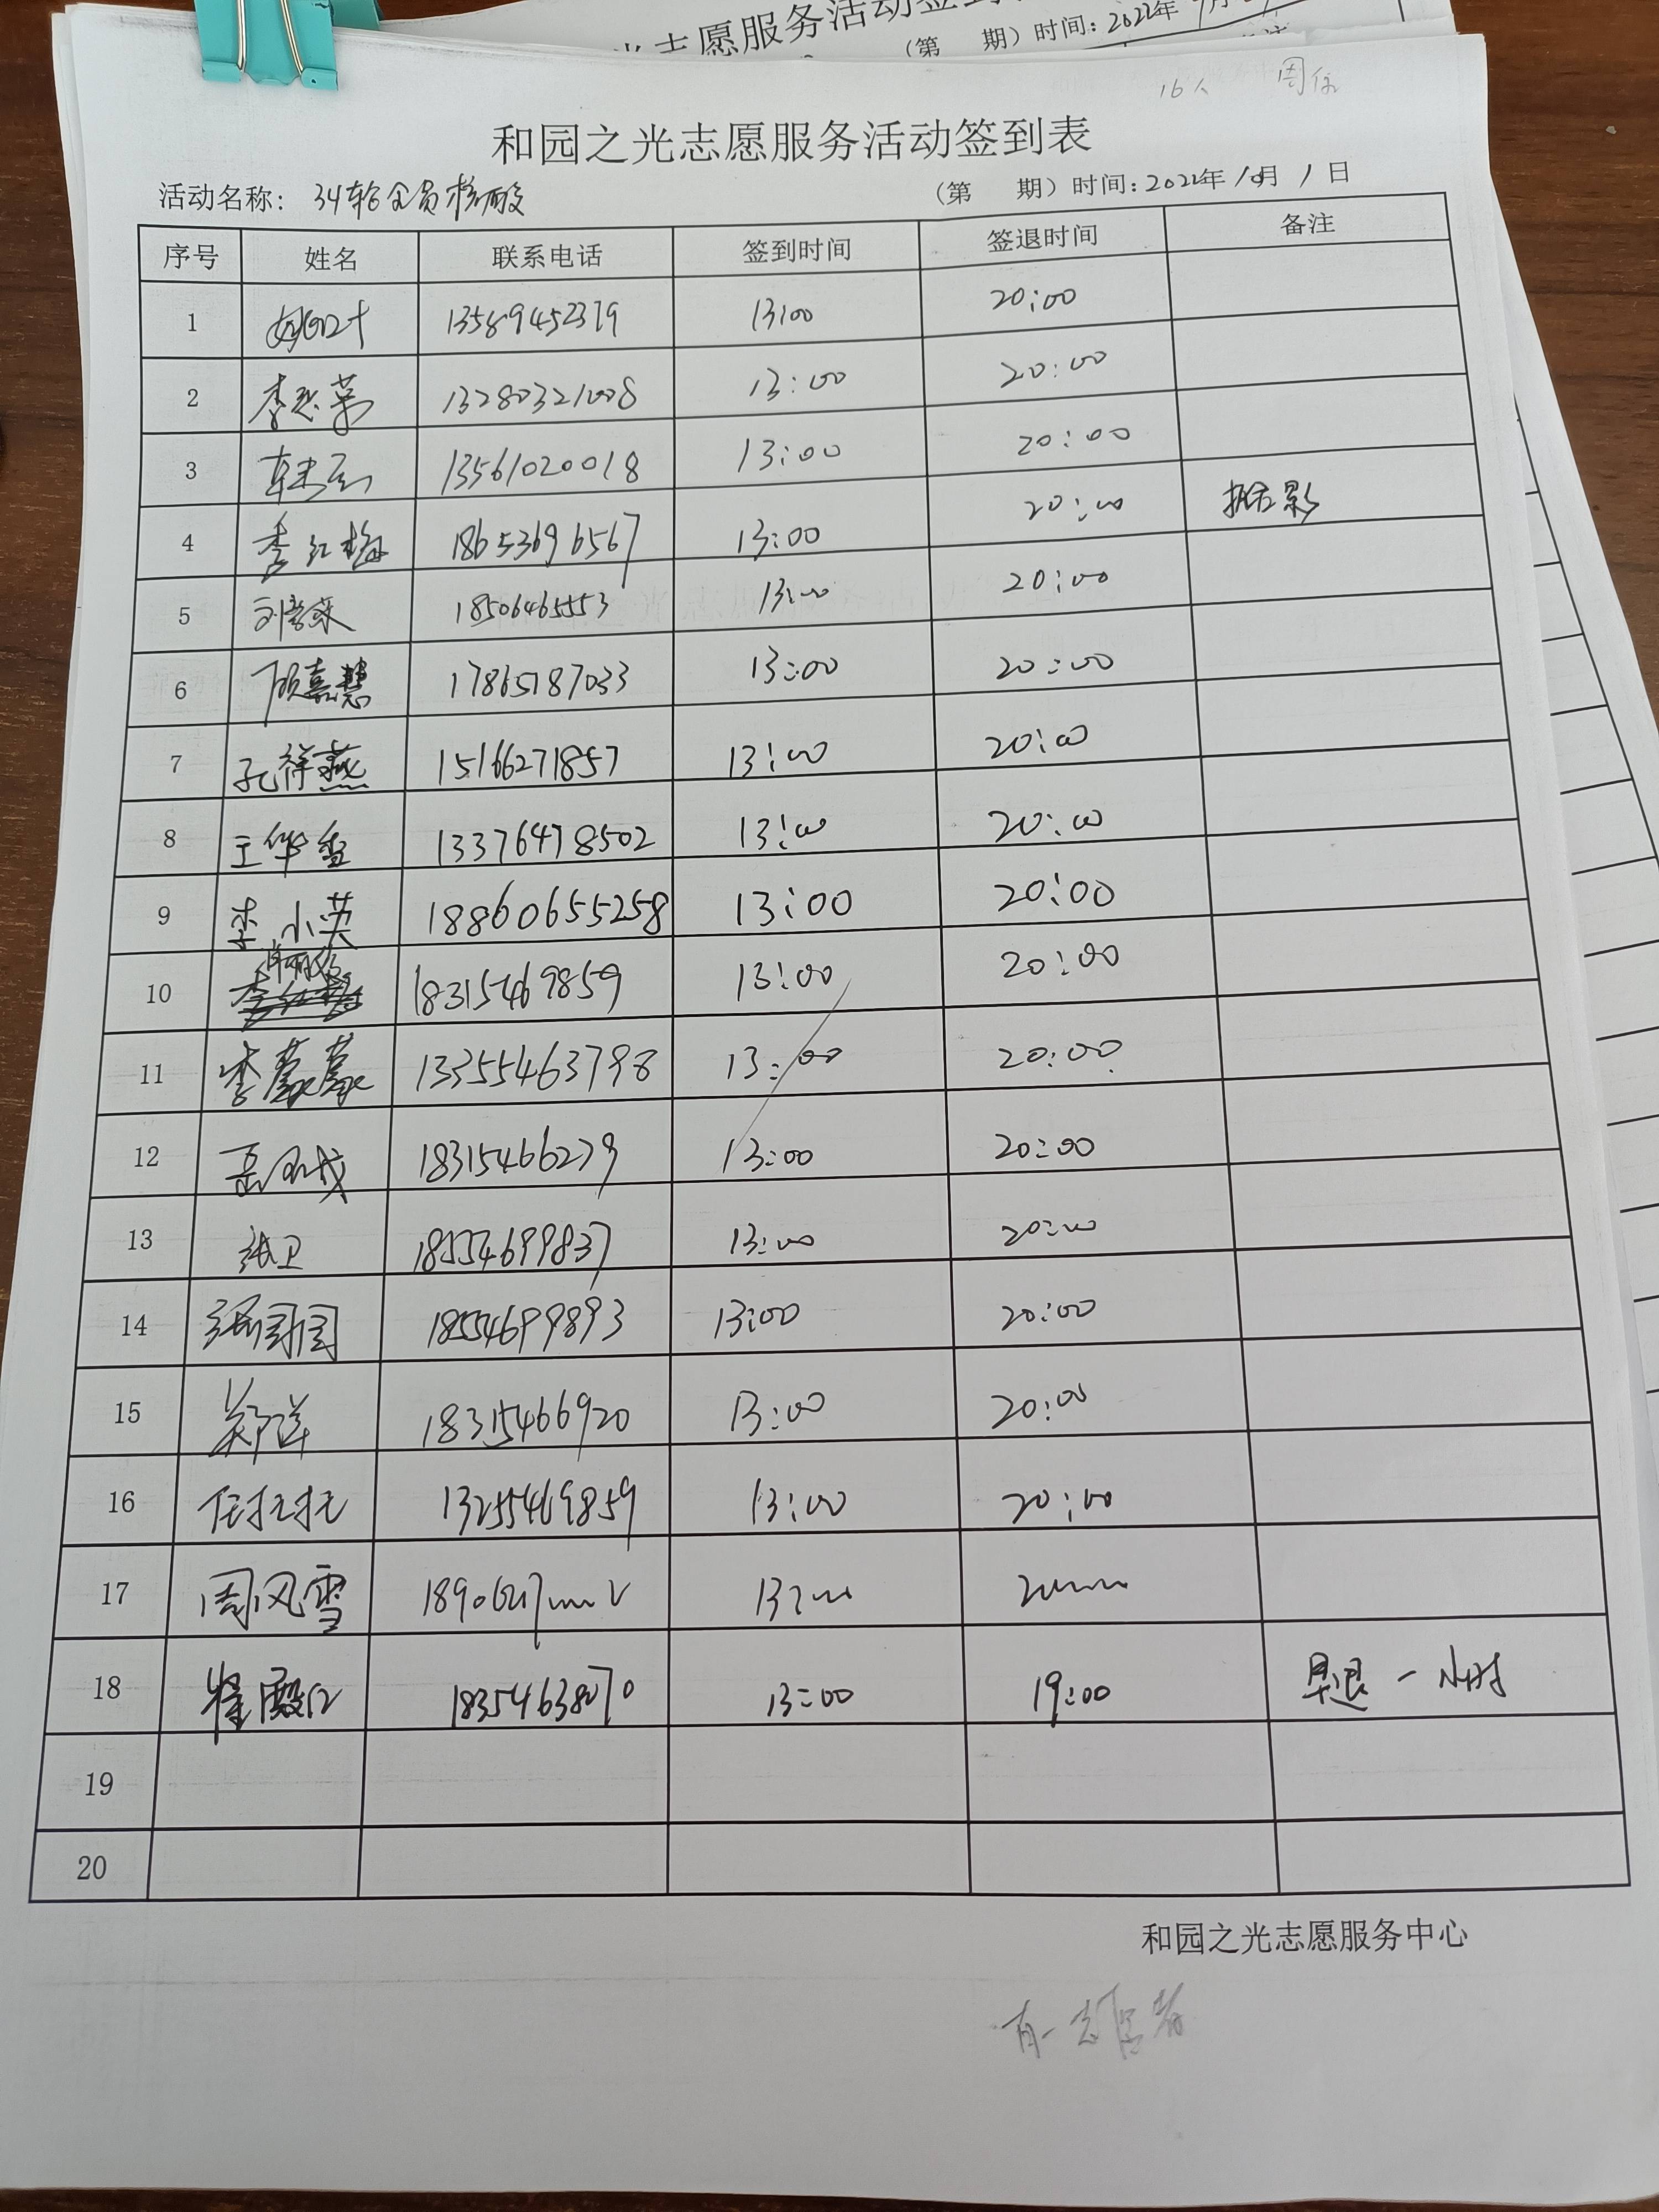 志愿服务活动签到
（第 期）时间：2022年9月
16人 周
和园之光志愿服务活动签到表
活动名称：34轮全员核酸 （第 期）时间：2022年10月1日
序号 姓名 联系电话 签到时间 签退时间 备注
1 13589452379 13:00 20:00
2 李 荣 13280321008 13:00 20:00
3 13561020018 13:00 20:00
4 李红梅 18653696567 13:00 20:00
5 刘 18506465553 13:00 20:00
6 顾嘉慧 17865187033 13:00 20:00
7 孔祥燕 15166271857 13:00 20:00
8 王华香 13376478502 13:00 20:00
9 李小英 18860655258 13:00 20:00
10 18315469859 13:00 20:00
11 李蒙蒙 13355463798 13:00 20:00
12 岳 18315466279 13:00 20:00
13 张卫 18554699837 13:00 20:00
14 张园园 18554699893 13:00 20:00
15 郑洋 18315466920 13:00 20:00
16 任托托 13255469859 13:00 20:00
17 周风雪 13:00
18 崔殿 18354638070 13:00 19:00 早退一小时
19
20
和园之光志愿服务中心
有一志愿者